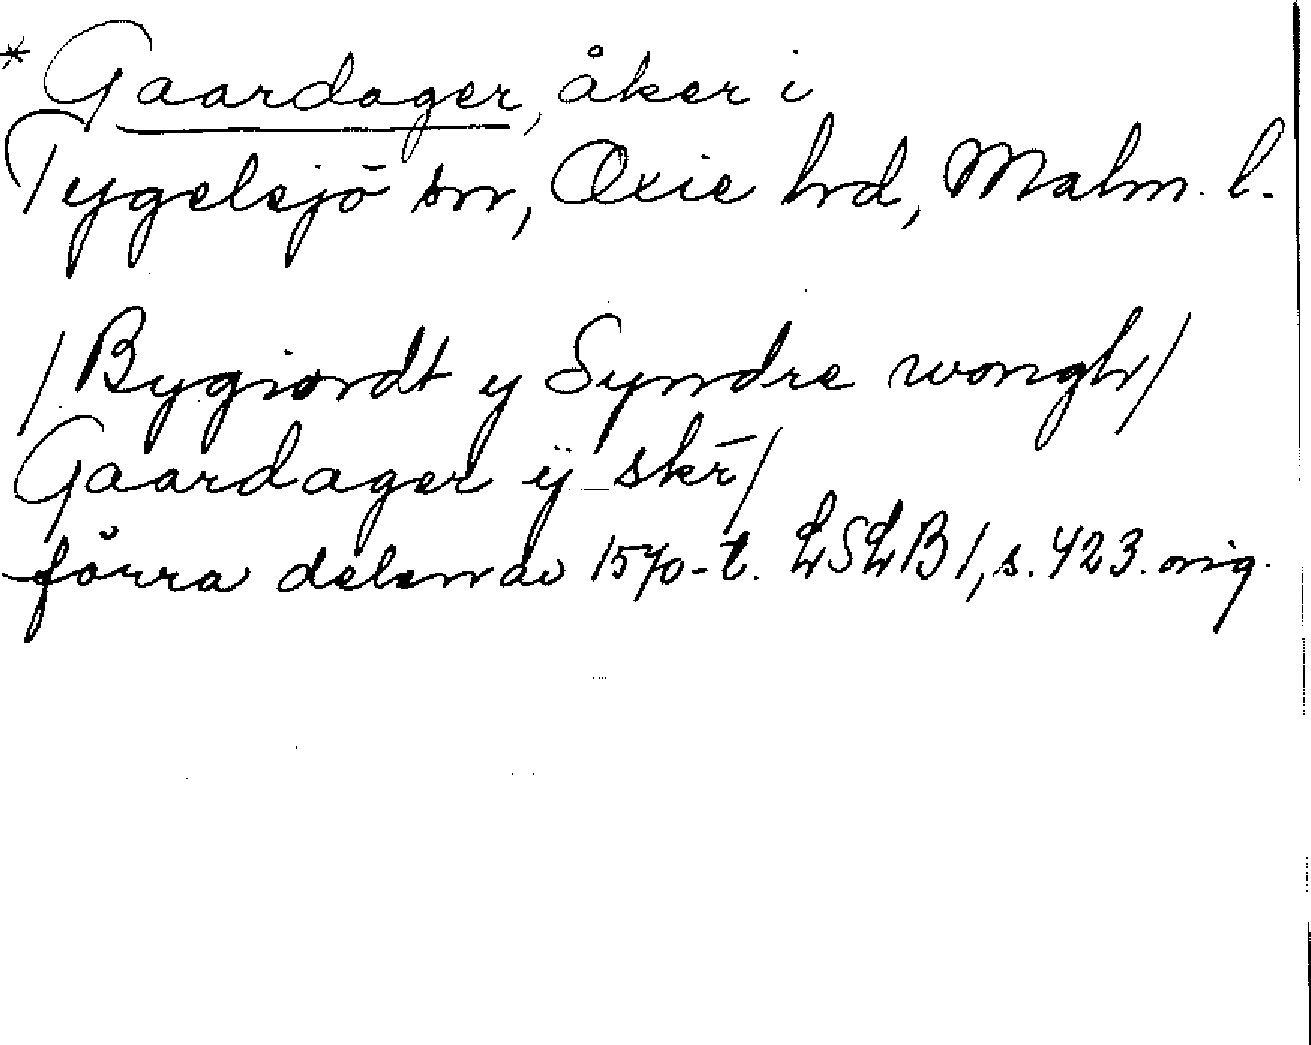 * Gaardager, åker i
Tygelsjö sn, Oxie hd, Malm. l.
/Bygiordt y Syndre wongh/
Gaardager ÿ skr̄/
förra delen av 1570-t. LSLB 1, s. 423. orig.